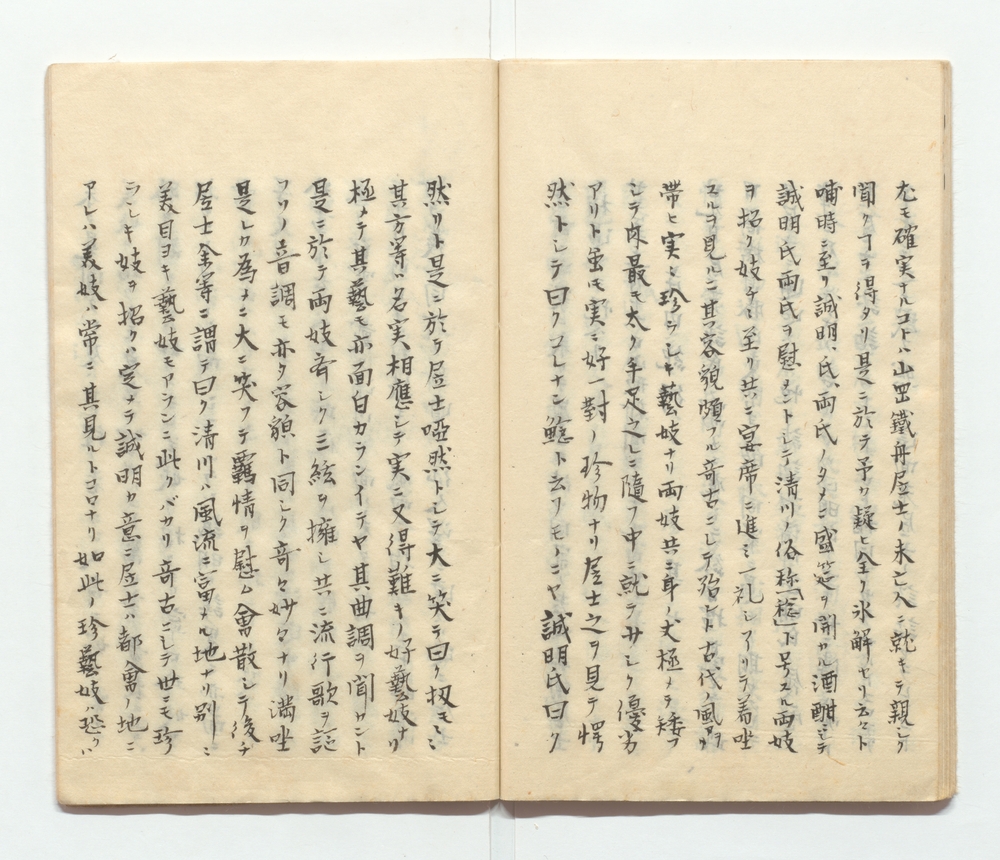 尤モ確実ナルコトハ山岡鐵舟居士ノ未亡人ニ就キテ親シク
聞クヿヲ得タリ是ニ於テ予カ疑ヒ全ク氷解セリ云々ト
晡時ニ至リ誠明氏両氏ノタメニ盛筵ヲ開カル酒酣ニシテ
誠明氏両氏ヲ慰メントシテ清川ノ俗称「稔」ト号スル両妓
ヲ招ク妓チニ至リ共ニ宴席ニ進ミ一礼シアリテ着坐
スルヲ見ルニ其容貌頗フル奇古ニシテ殆ント古代ノ風ヲ
帯ヒ実ニ珍ラシキ藝妓ナリ両妓共ニ身ノ丈極メテ矮フ
シテ体最モ太ク手足之レニ随フ中ニ就テ少シク優劣
アリト虽モ実ニ好一對ノ珍物ナリ居士之ヲ見テ愕
然トシテ曰クコレナン鯰ト云フモノニヤ誠明氏曰ク
然リト是ニ於テ居士啞然トシテ大ニ笑テ曰ク扨モ
其方等ハ名実相應シテ実ニ又得難キノ好藝妓ナリ
極メテ其藝モ亦面白カランイテヤ其曲調ヲ聞カント
是ニ於テ両妓斉シク三絃ヲ擁シ共ニ流行歌ヲ謡
フソノ音調モ亦タ容貌ト同シク奇々妙々ナリ満坐
是レカ為メニ大ニ笑フテ羈情ヲ慰ム會散シテ後チ
居士余等ニ謂テ曰ク清川ハ風流ニ富メル地ナリ別ニ
美目ヨキ藝妓モアランニ此クバカリ奇古ニシテ世ニモ珍
ラシキ妓ヲ招クハ定メテ誠明カ意ニ居士ハ都會ノ地ニ
アレハ美妓ハ常ニ其見ルトコロナリ如此ノ珍藝妓ハ恐クハ